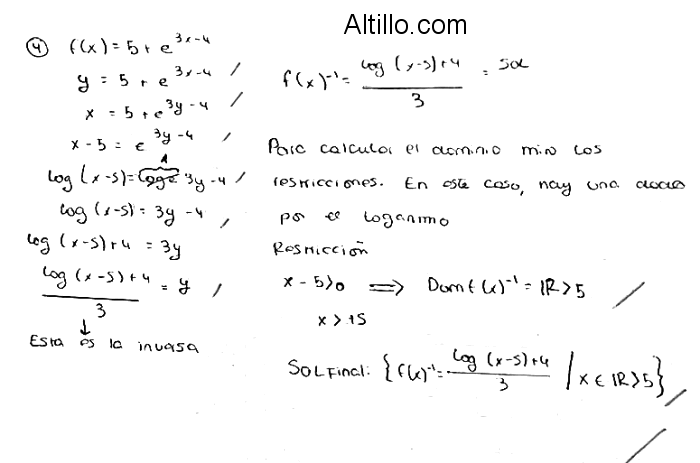 Altillo.com
④ f(x) = 5 + e^{3x-4}
y = 5 + e^{3x-4} /
x = 5 + e^{3y-4} /
x - 5 = e^{3y-4} /
log (x-5) = log e 3y-4 /
1
log (x-5) = 3y-4 /
log (x-5) + 4 = 3y
\frac{log (x-5) + 4}{3} = y /
↓
Esta es la inversa
f(x)^{-1} = \frac{log (x-5) + 4}{3} = Sol
Para calcular el dominio miro los
restricciones. En este caso, hay una dada
por el logaritmo
Restricción
x - 5 > 0 ⟹ Dom f(x)^{-1} = ℝ > 5 /
x > +5
SOL Final: {f(x)^{-1} = \frac{log (x-5) + 4}{3} / x ∈ ℝ > 5} /
/